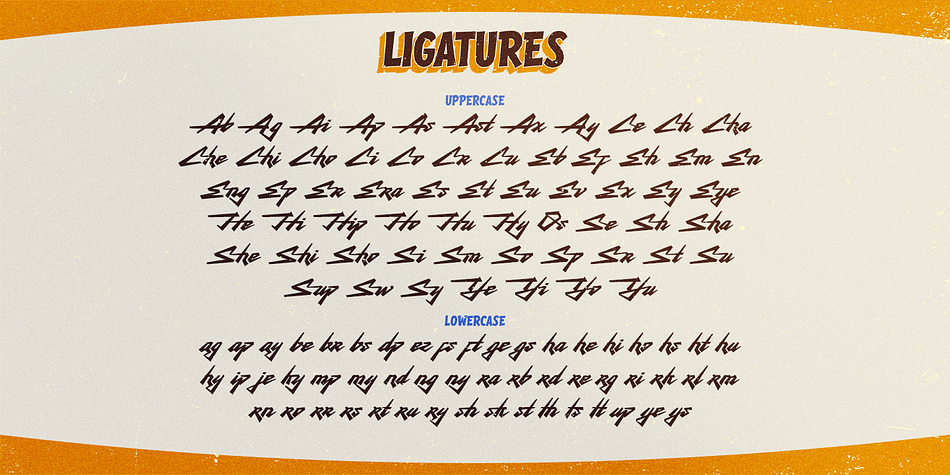 LIGATURES
UPPERCASE
Ab Ag Ai Ap As Ast Ax Ay Ce Ch Cha
Che Chi Cho Ci Co Cr Cu Eb Ef Eh Em En
Eng Ep Er Era Es Et Eu Ev Ex Ey Eye
He Hi Hip Ho Hu Hy Os Se Sh Sha
She Shi Sho Si Sm So Sp Sr St Su
Sup Sw Sy Ye Yi Yo Yu
LOWERCASE
ag ap ay be br bs dp ez fs ft ge gs ha he hi ho hs ht hu
hy ip je ky mp my nd ng ny ra rb rd re rg ri rk rl rm
rn ro rr rs rt ru ry sh sk st th ts tt up ye ys